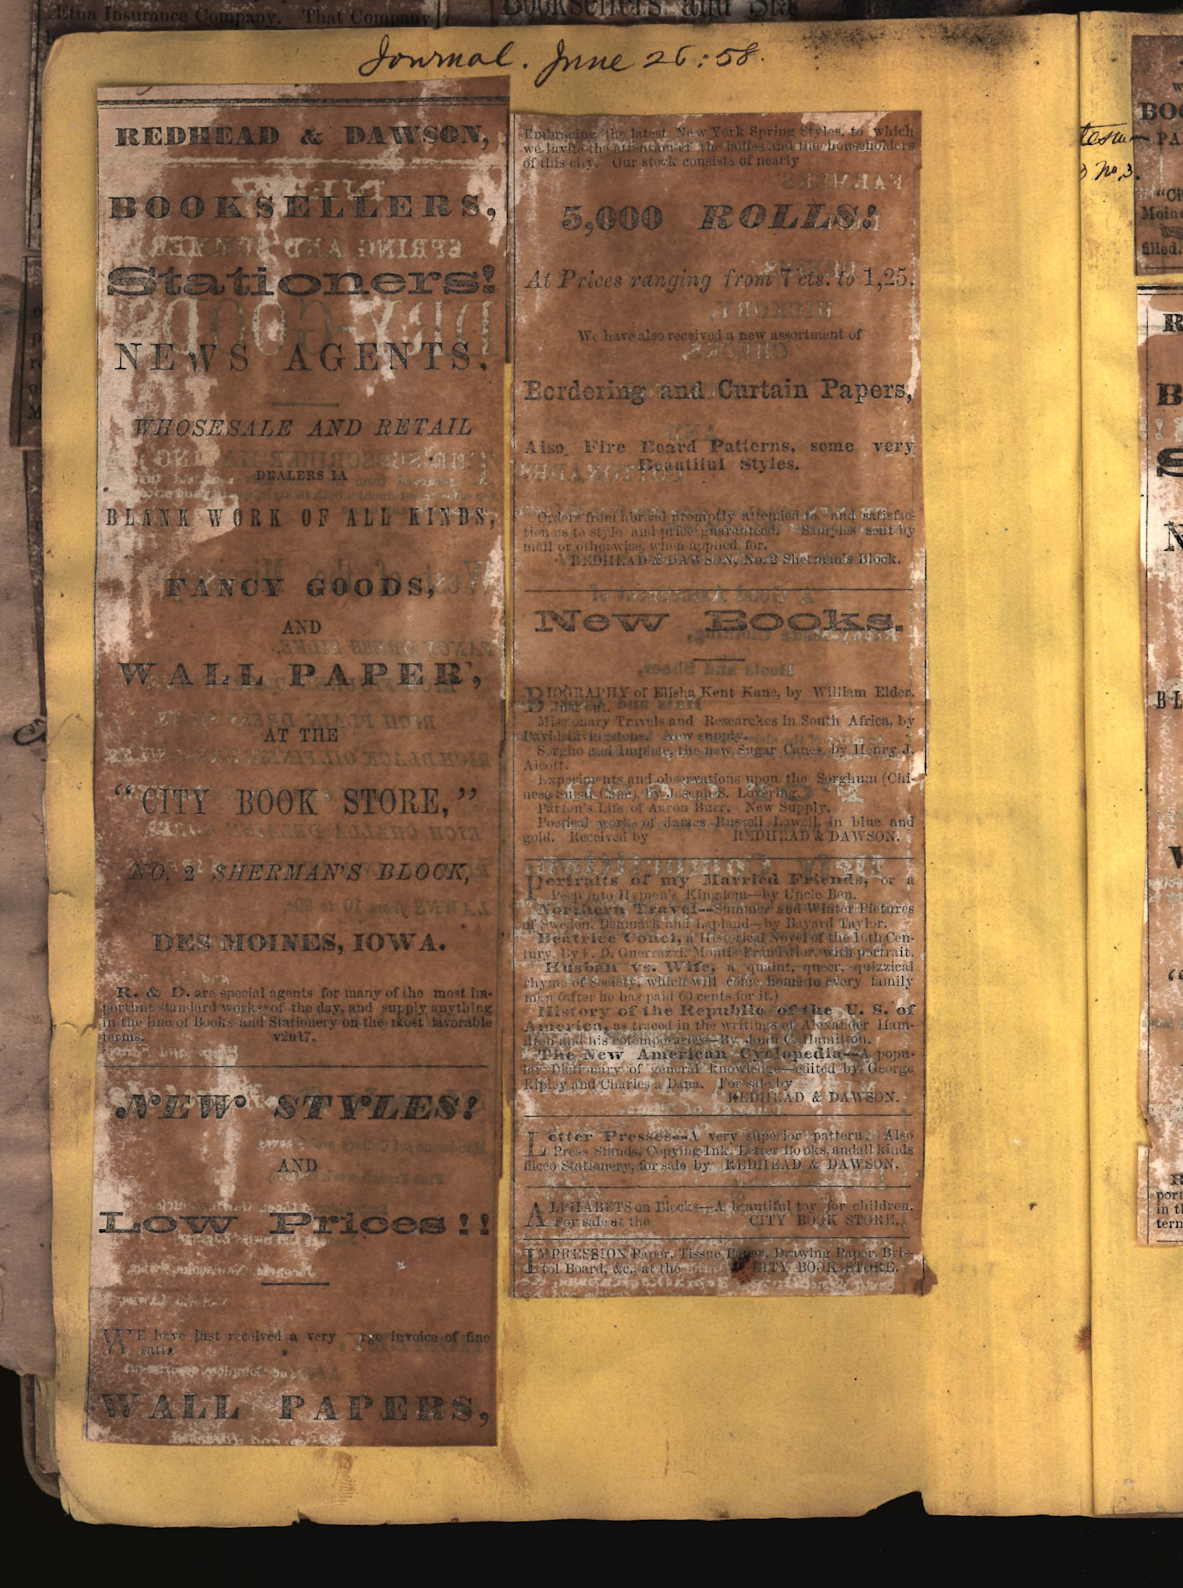 Journal. June 26:58.
REDHEAD & DAWSON,
BOOKSELLERS,
Stationers!
NEWS AGENTS.
WHOSESALE AND RETAIL
DEALERS IA
BLANK WORK OF ALL KINDS,
FANCY GOODS,
AND
WALL PAPER,
AT THE
“CITY BOOK STORE,”
NO. 2 SHERMAN'S BLOCK,
DES MOINES, IOWA.
R. & D. are special agents for many of the most im-
portant standard works of the day, and supply anything
in the line of Books and Stationery on the most favorable
terms. v2n17.
NEW STYLES!
AND
Low Prices!!
WE have just received a very invoice of fine
WALL PAPERS,
Embracing the latest New York Spring Styles, to which
we invite the attention of the ladies and the householders
of this city. Our stock consists of nearly
5,000 ROLLS!
At Prices ranging from 7 cts. to 1,25.
We have also received a new assortment of
Bordering and Curtain Papers,
Also, Fire Board Patterns, some very
Beautiful Styles.
Orders from abroad promptly attended to, and satisfac-
tion as to style and price guaranteed. Samples sent by
mail or otherwise, when applied for.
REDHEAD & DAWSON, No. 2 Sherman's Block.
New Books.
BIOGRAPHY of Elisha Kent Kane, by William Elder.
Just out.
Missionary Travels and Researches in South Africa, by
David Livingstone. New supply.
Sorgho and Imphee, the new Sugar Canes, by Henry J.
Alcott.
Experiments and observations upon the Sorghum (Chi-
nese Sugar Cane), by Joseph S. Lovering.
Parton's Life of Aaron Burr. New Supply.
Poetical works of James Russell Lowell, in blue and
gold. Received by REDHEAD & DAWSON.
Portraits of my Married Friends, or a
Peep into Hymen's Kingdom—by Uncle Ben.
Northern Travel—Summer and Winter Pictures
of Sweden, Denmark and Lapland—by Bayard Taylor.
Beatrice Cenci, a Historical Novel of the 16th Cen-
tury, by F. D. Guerrazzi. Translation, with portrait.
Husban vs. Wife, a quaint, queer, quizzical
rhyme of Society, which will come home to every family
man (after he has paid 60 cents for it.)
History of the Republic of the U. S. of
America, as traced in the writings of Alexander Ham-
ilton and his cotemporaries—By John C. Hamilton.
The New American Cyclopedia—A popu-
lar Dictionary of general knowledge—edited by George
Ripley and Charles a Dana. For sale by
REDHEAD & DAWSON.
Letter Presses—A very superior pattern. Also
Press Stands, Copying Ink, Letter Books, and all kinds
Stationery, for sale by REDHEAD & DAWSON.
ALPHABETS on Blocks—A beautiful toy for children.
For sale at the CITY BOOK STORE.
IMPRESSION Paper, Tissue Paper, Drawing Paper, Bris-
tol Board, &c. at the CITY BOOK STORE.